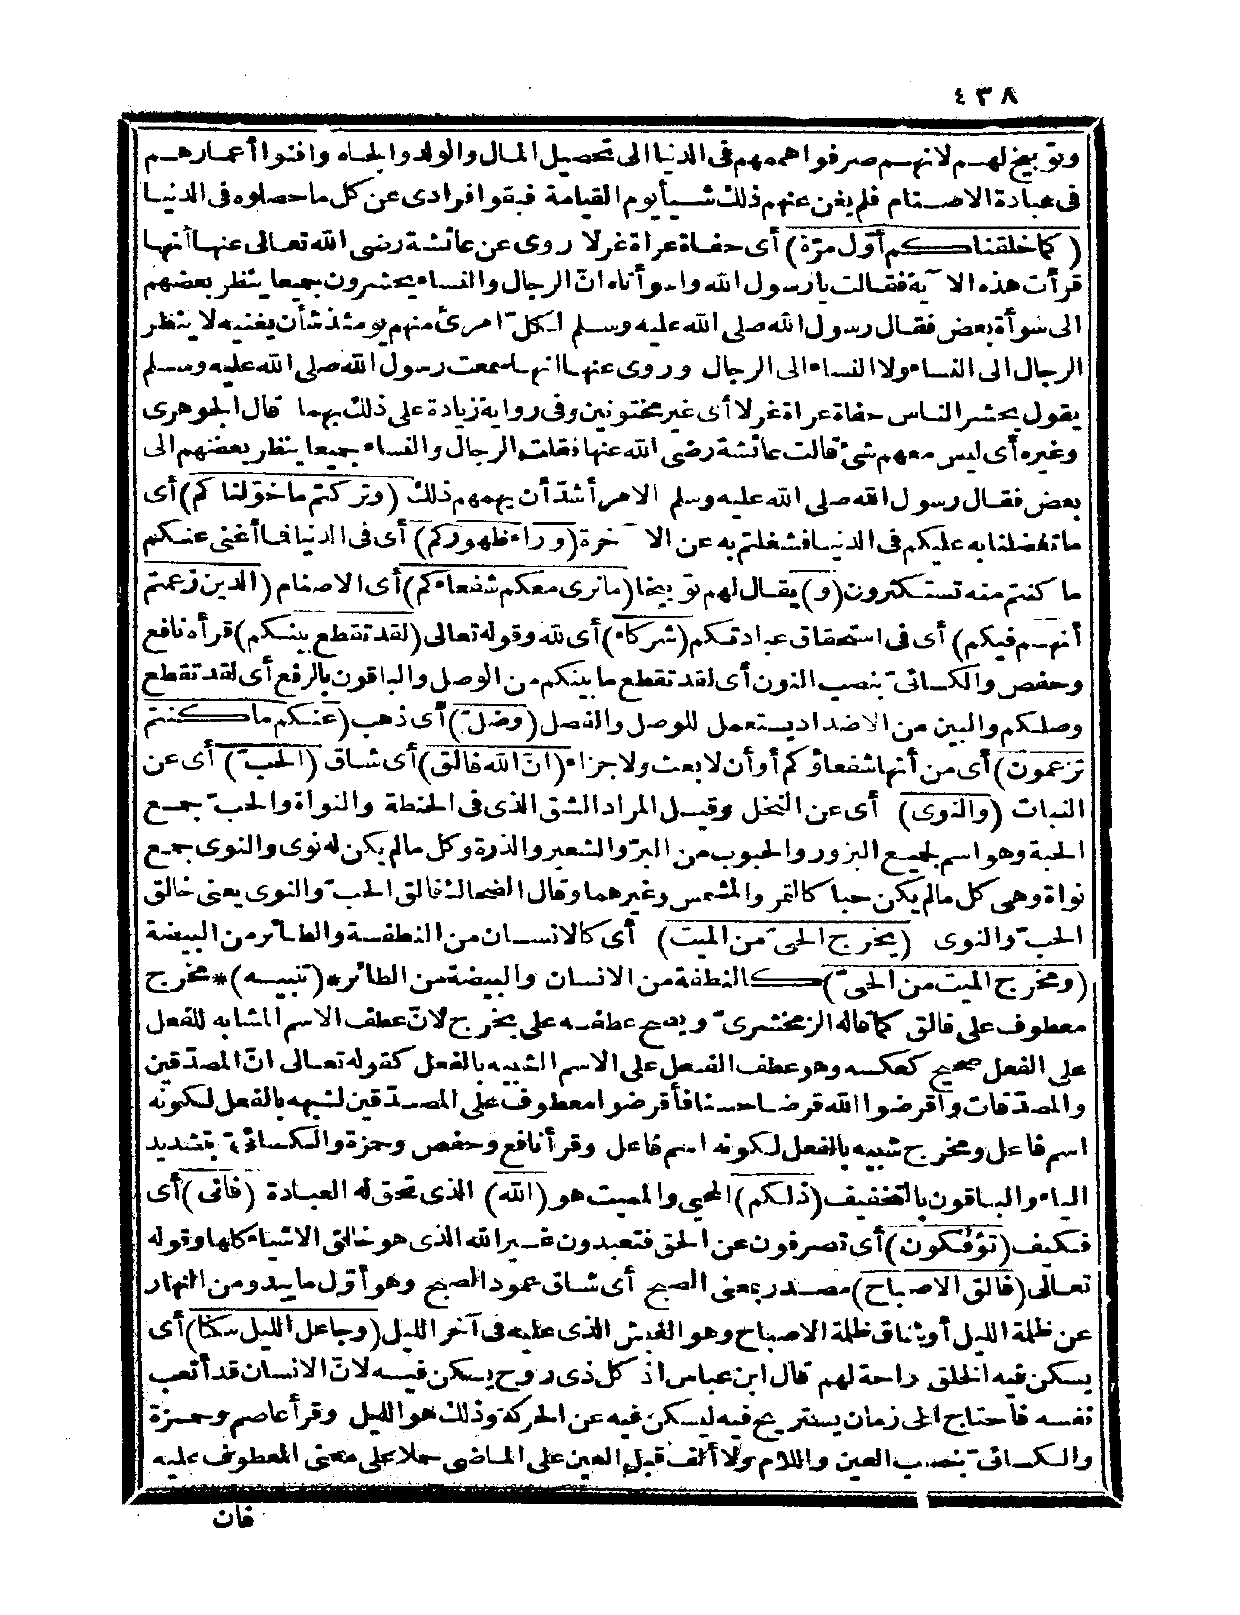 ٤٣٨
وتوبيخ لهم لانهم صرفوا هممهم فى الدنيا الى تحصيل المال والولد والجاه وافنوا أعمارهم
فى عبادة الاصنام فلم يغن عنهم ذلك شيأ يوم القيامة فبقوا فرادى عن كل ما حصلوه فى الدنيا
(كما خلقناكم أوّل مرّة) أى حفاة عراة غرلا روى عن عائشة رضى الله تعالى عنها أنها
قرأت هذه الآية فقالت يا رسول الله واسوأتاه انّ الرجال والنساء يحشرون جميعا ينظر بعضهم
الى سوأة بعض فقال رسول الله صلى الله عليه وسلم لكلّ امرئ منهم يومئذ شأن يغنيه لا ينظر
الرجال الى النساء ولا النساء الى الرجال وروى عنها انها سمعت رسول الله صلى الله عليه وسلم
يقول يحشر الناس حفاة عراة غرلا أى غير مختونين وفى رواية زيادة على ذلك بهما قال الجوهرى
وغيره أى ليس معهم شئ قالت عائشة رضى الله عنها فقلت الرجال والنساء جميعا ينظر بعضهم الى
بعض فقال رسول الله صلى الله عليه وسلم الامر أشدّ أن يهمهم ذلك (وتركتم ما خوّلناكم) أى
ما تفضلنا به عليكم فى الدنيا فشغلتم به عن الآخرة (وراء ظهوركم) أى فى الدنيا فما أغنى عنكم
ما كنتم منه تستكثرون (و) يقال لهم توبيخا (ما نرى معكم شفعاءكم) أى الاصنام (الذين زعمتم
أنهم فيكم) أى فى استحقاق عبادتكم (شركاء) أى لله وقوله تعالى (لقد تقطع بينكم) قرأه نافع
وحفص والكسائىّ بنصب النون أى لقد تقطع ما بينكم من الوصل والباقون بالرفع أى لقد تقطع
وصلكم والبين من الاضداد يستعمل للوصل والفصل (وضلّ) أى ذهب (عنكم ما كنتم
تزعمون) أى من أنها شفعاؤكم أو أن لا بعث ولا جزاء (انّ الله فالق) أى شاق (الحبّ) أى عن
النبات (والنوى) أى عن النخل وقيل المراد الشق الذى فى الحنطة والنواة والحبّ جمع
الحبة وهو اسم لجميع البزور والحبوب من البرّ والشعير والذرة وكل ما لم يكن له نوى والنوى جمع
نواة وهى كل ما لم يكن حبا كالتمر والمشمس وغيرهما وقال الضحاك فالق الحبّ والنوى يعنى خالق
الحبّ والنوى (يخرج الحىّ من الميت) أى كالانسان من النطفة والطائر من البيضة
(ومخرج الميت من الحىّ) كالنطفة من الانسان والبيضة من الطائر*(تنبيه)* مخرج
معطوف على فالق كما قاله الزمخشرىّ ويصح عطفه على يخرج لانّ عطف الاسم المشابه للفعل
على الفعل صحيح كعكسه وهو عطف الفعل على الاسم الشبيه بالفعل كقوله تعالى انّ المصدّقين
والمصدّقات وأقرضوا الله قرضا حسنا فأقرضوا معطوف على المصدّقين لشبهه بالفعل لكونه
اسم فاعل ومخرج شبيه بالفعل لكونه اسم فاعل وقرأ نافع وحفص وحمزة والكسائىّ بتشديد
الياء والباقون بالتخفيف (ذلكم) المحيى والمميت هو (الله) الذى تحق له العبادة (فانى) أى
فكيف (تؤفكون) أى تصرفون عن الحق فتعبدون غير الله الذى هو خالق الاشياء كلها وقوله
تعالى (فالق الاصباح) مصدر بمعنى الصبح أى شاق عمود الصبح وهو أول ما يبدو من النهار
عن ظلمة الليل أو شاق ظلمة الاصباح وهو الغبش الذى عليه فى آخر الليل (وجاعل الليل سكنا) أى
يسكن فيه الخلق راحة لهم قال ابن عباس اذ كل ذى روح يسكن فيه لانّ الانسان قد أتعب
نفسه فاحتاج الى زمان يستريح فيه ليسكن فيه عن الحركة وذلك هو الليل وقرأ عاصم وحمزة
والكسائىّ بنصب العين واللام ولا ألف قبل العين على الماضى حملا على معنى المعطوف عليه
فان